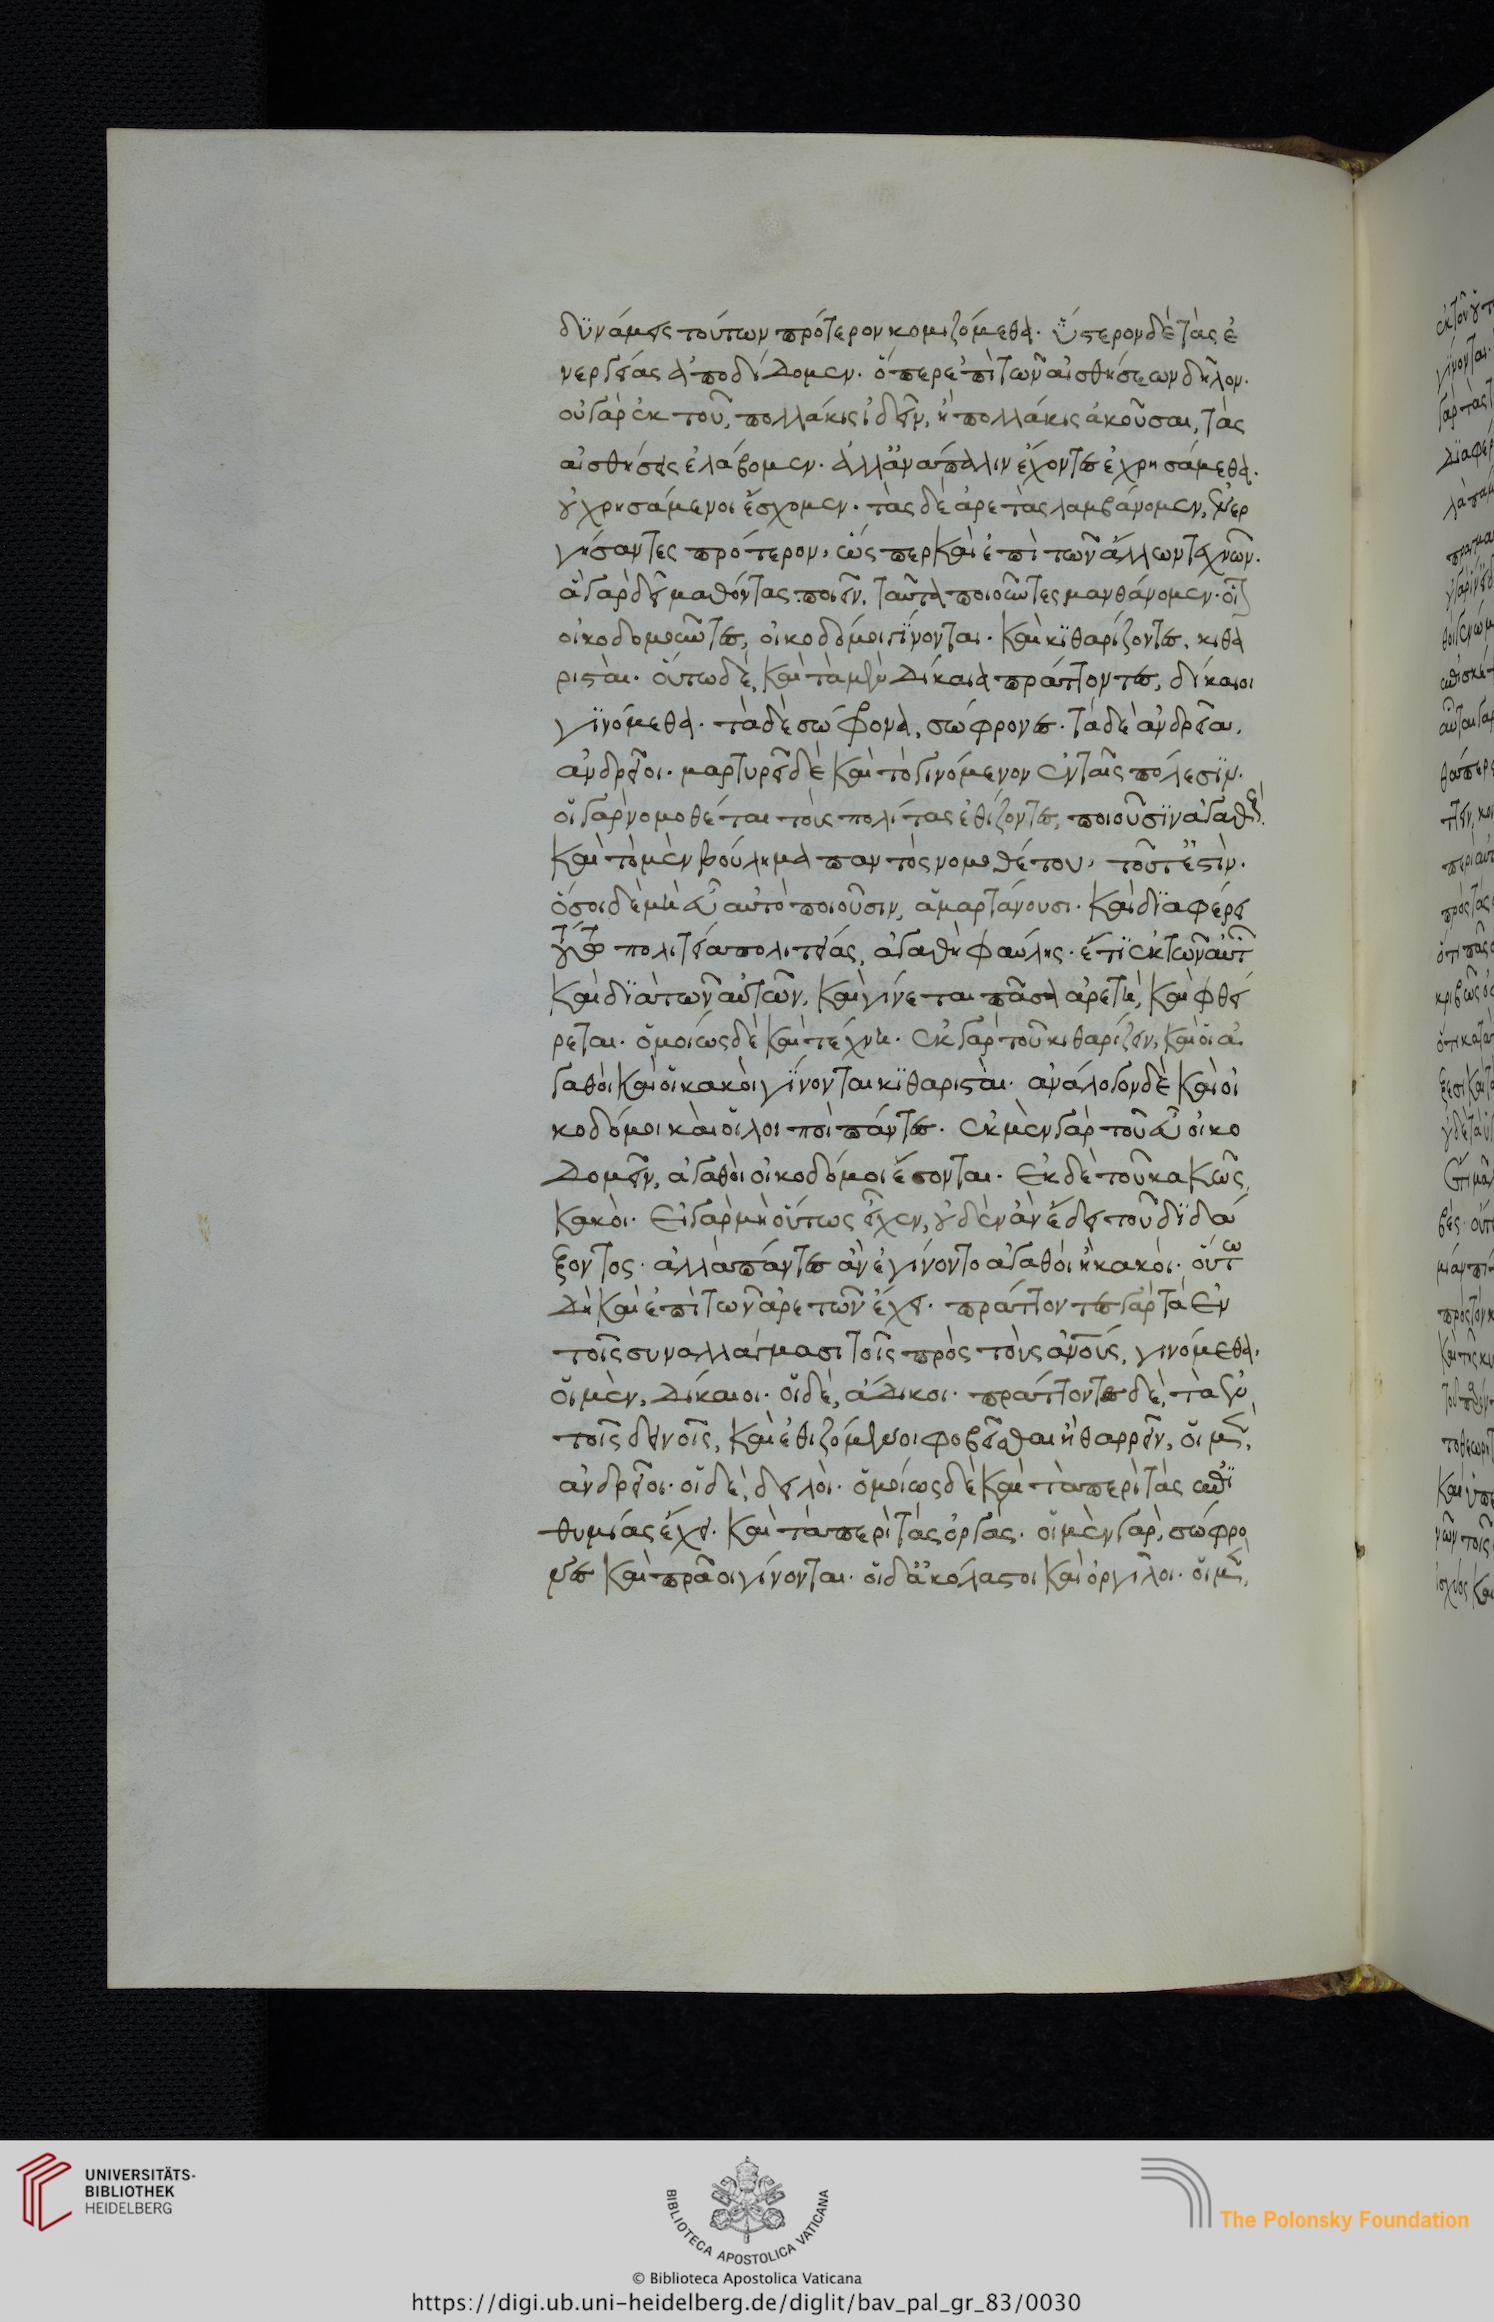 δϋνάμεις τούτων πρότερον κομιζόμεθα· ὕστερον δὲ τὰς ἐ
νεργείας ἀποδίδομεν· ὅπερ ἐπὶ τῶν αἰσθήσεων δῆλον·
οὐ γὰρ ἐκ τοῦ, πολλάκις ἰδεῖν, ἢ πολλάκις ἀκοῦσαι, τὰς
αἰσθήσεις ἐλάβομεν· ἀλλ' ἀνάπαλιν ἔχοντες ἐχρησάμεθα·
οὐ χρησάμενοι ἔσχομεν· τὰς δὲ ἀρετὰς λαμβάνομεν, ἐνερ
γήσαντες πρότερον, ὥσπερ καὶ ἐπὶ τῶν ἄλλων τεχνῶν·
ἃ γὰρ δεῖ μαθόντας ποιεῖν, ταῦτα ποιοῦντες μανθάνομεν· οἷον
οἰκοδομοῦντες, οἰκοδόμοι γίνονται· καὶ κϊθαρίζοντες, κιθα
ρισταὶ· οὕτω δὲ, καὶ τὰ μὲν δίκαια πράττοντες, δίκαιοι
γϊνόμεθα· τὰ δὲ σώφρονα, σώφρονες· τὰ δὲ ἀνδρεῖα,
ἀνδρεῖοι· μαρτυρεῖ δὲ καὶ τὸ γινόμενον ἐν ταῖς πόλεσϊν·
οἱ γὰρ νομοθέται τοὺς πολίτας ἐθίζοντες, ποιοῦσϊν ἀγαθούς·
καὶ τὸ μὲν βούλημα παντὸς νομοθέτου, τοῦτ' ἔστὶν·
ὅσοι δὲ μὴ εὖ αὐτὸ ποιοῦσιν, ἁμαρτάνουσι· καὶ δϊαφέρει
τούτω πολιτεία πολιτείας, ἀγαθὴ φαύλης· ἔτϊ ἐκ τῶν αὐτῶν
καὶ δϊὰ τῶν αὐτῶν, καὶ γίνεται πᾶσα ἀρετὴ, καὶ φθεί
ρεται· ὁμοίως δὲ καὶ τέχνη· ἐκ γὰρ τοῦ κιθαρίζειν, καὶ οἱ ἀ
γαθοὶ καὶ οἱ κακοὶ γϊνονται κϊθαρισταὶ· ἀνάλογον δὲ καὶ οἱ
κοδόμοι καὶ οἱ λοιποὶ πάντες· ἐκ μὲν γὰρ τοῦ εὖ οἰκο
δομεῖν, ἀγαθοὶ οἰκοδόμοι ἔσονται· ἐκ δὲ τοῦ κακῶς,
κακοὶ· εἰ γὰρ μὴ οὕτως εἶχεν, οὐδὲν ἂν ἔδει τοῦ δϊδά
ξοντος· ἀλλὰ πάντες ἂν ἐγίνοντο ἀγαθοὶ ἢ κακοὶ· οὕτω
δὴ καὶ ἐπὶ τῶν ἀρετῶν ἔχει· πράττοντες γὰρ τὰ ἐν
τοῖς συναλλάγμασι τοῖς πρὸς τοὺς ἀνους, γινόμεθα,
οἱ μὲν, δίκαιοι· οἱ δὲ, ἄδικοι· πράττοντες δὲ, τὰ ἐν
τοῖς δεινοῖς, καὶ ἐθιζόμενοι φοβεῖσθαι ἢ θαρρεῖν, οἱ μὲν,
ἀνδρεῖοι· οἱ δὲ, δειλοὶ· ὁμοίως δὲ καὶ τὰ περὶ τὰς ἐπϊ
θυμίας ἔχει· καὶ τὰ περὶ τὰς ὀργὰς· οἱ μὲν γὰρ, σώφρο
νες καὶ πρᾶοι γίνονται· οἱ δ' ἀκόλαστοι καὶ ὀργίλοι· οἱ μὲν,
UNIVERSITÄTS-
BIBLIOTHEK
HEIDELBERG
BIBLIOTECA APOSTOLICA VATICANA
The Polonsky Foundation
© Biblioteca Apostolica Vaticana
https://digi.ub.uni-heidelberg.de/diglit/bav_pal_gr_83/0030